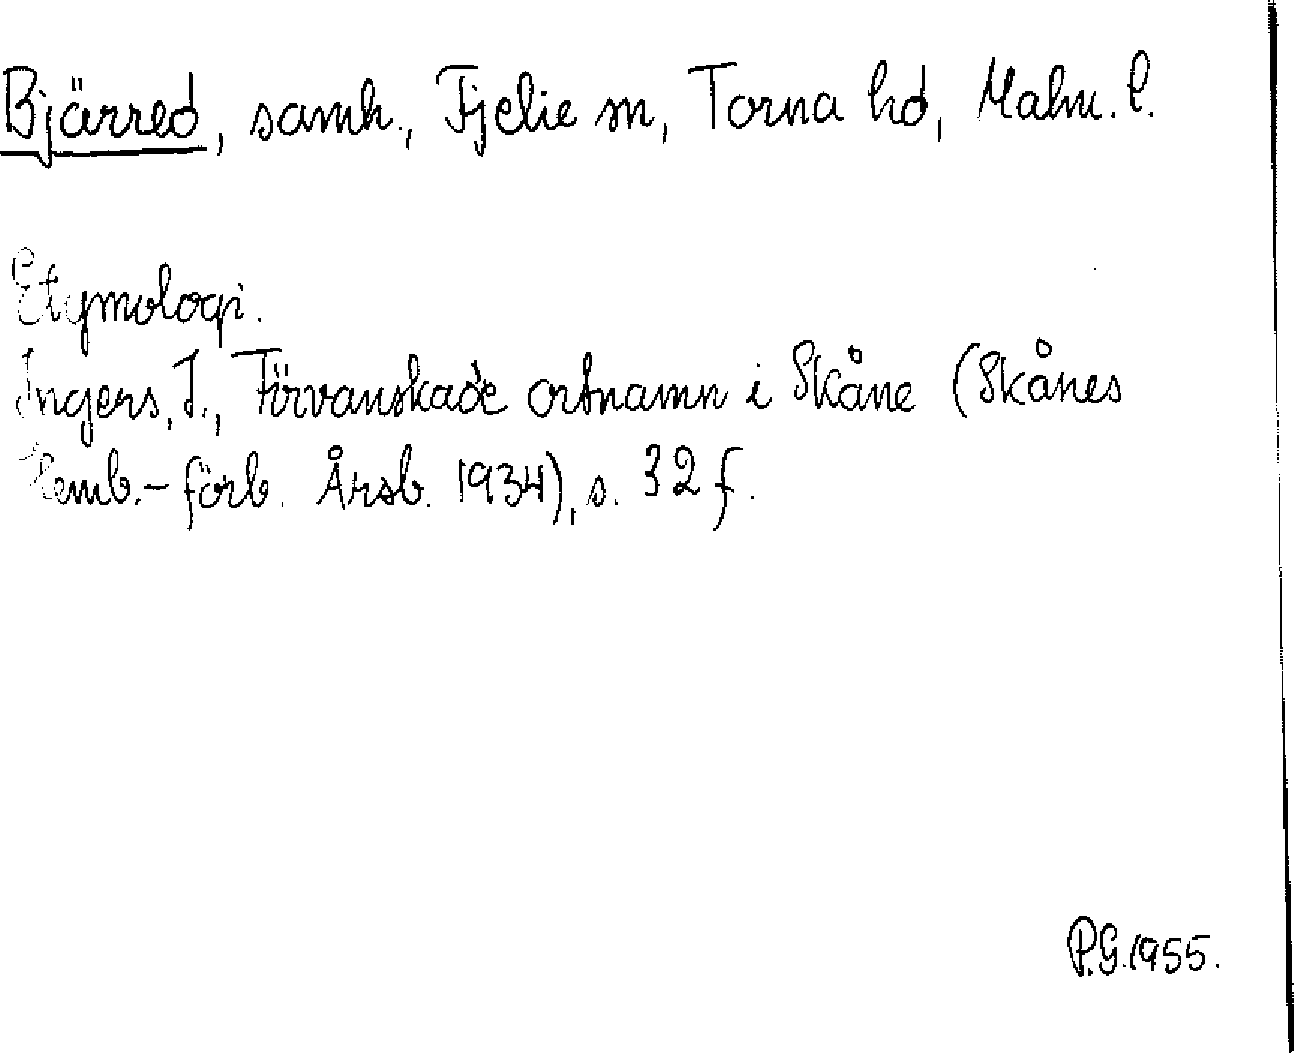 Bjärred, samh., Fjelie sn, Torna hd, Malm. l.
Etymologi.
Ingers, I., Förvanskade ortnamn i Skåne (Skånes
Hemb.-förb. Årsb. 1934), s. 32 f.
P.G. 1955.